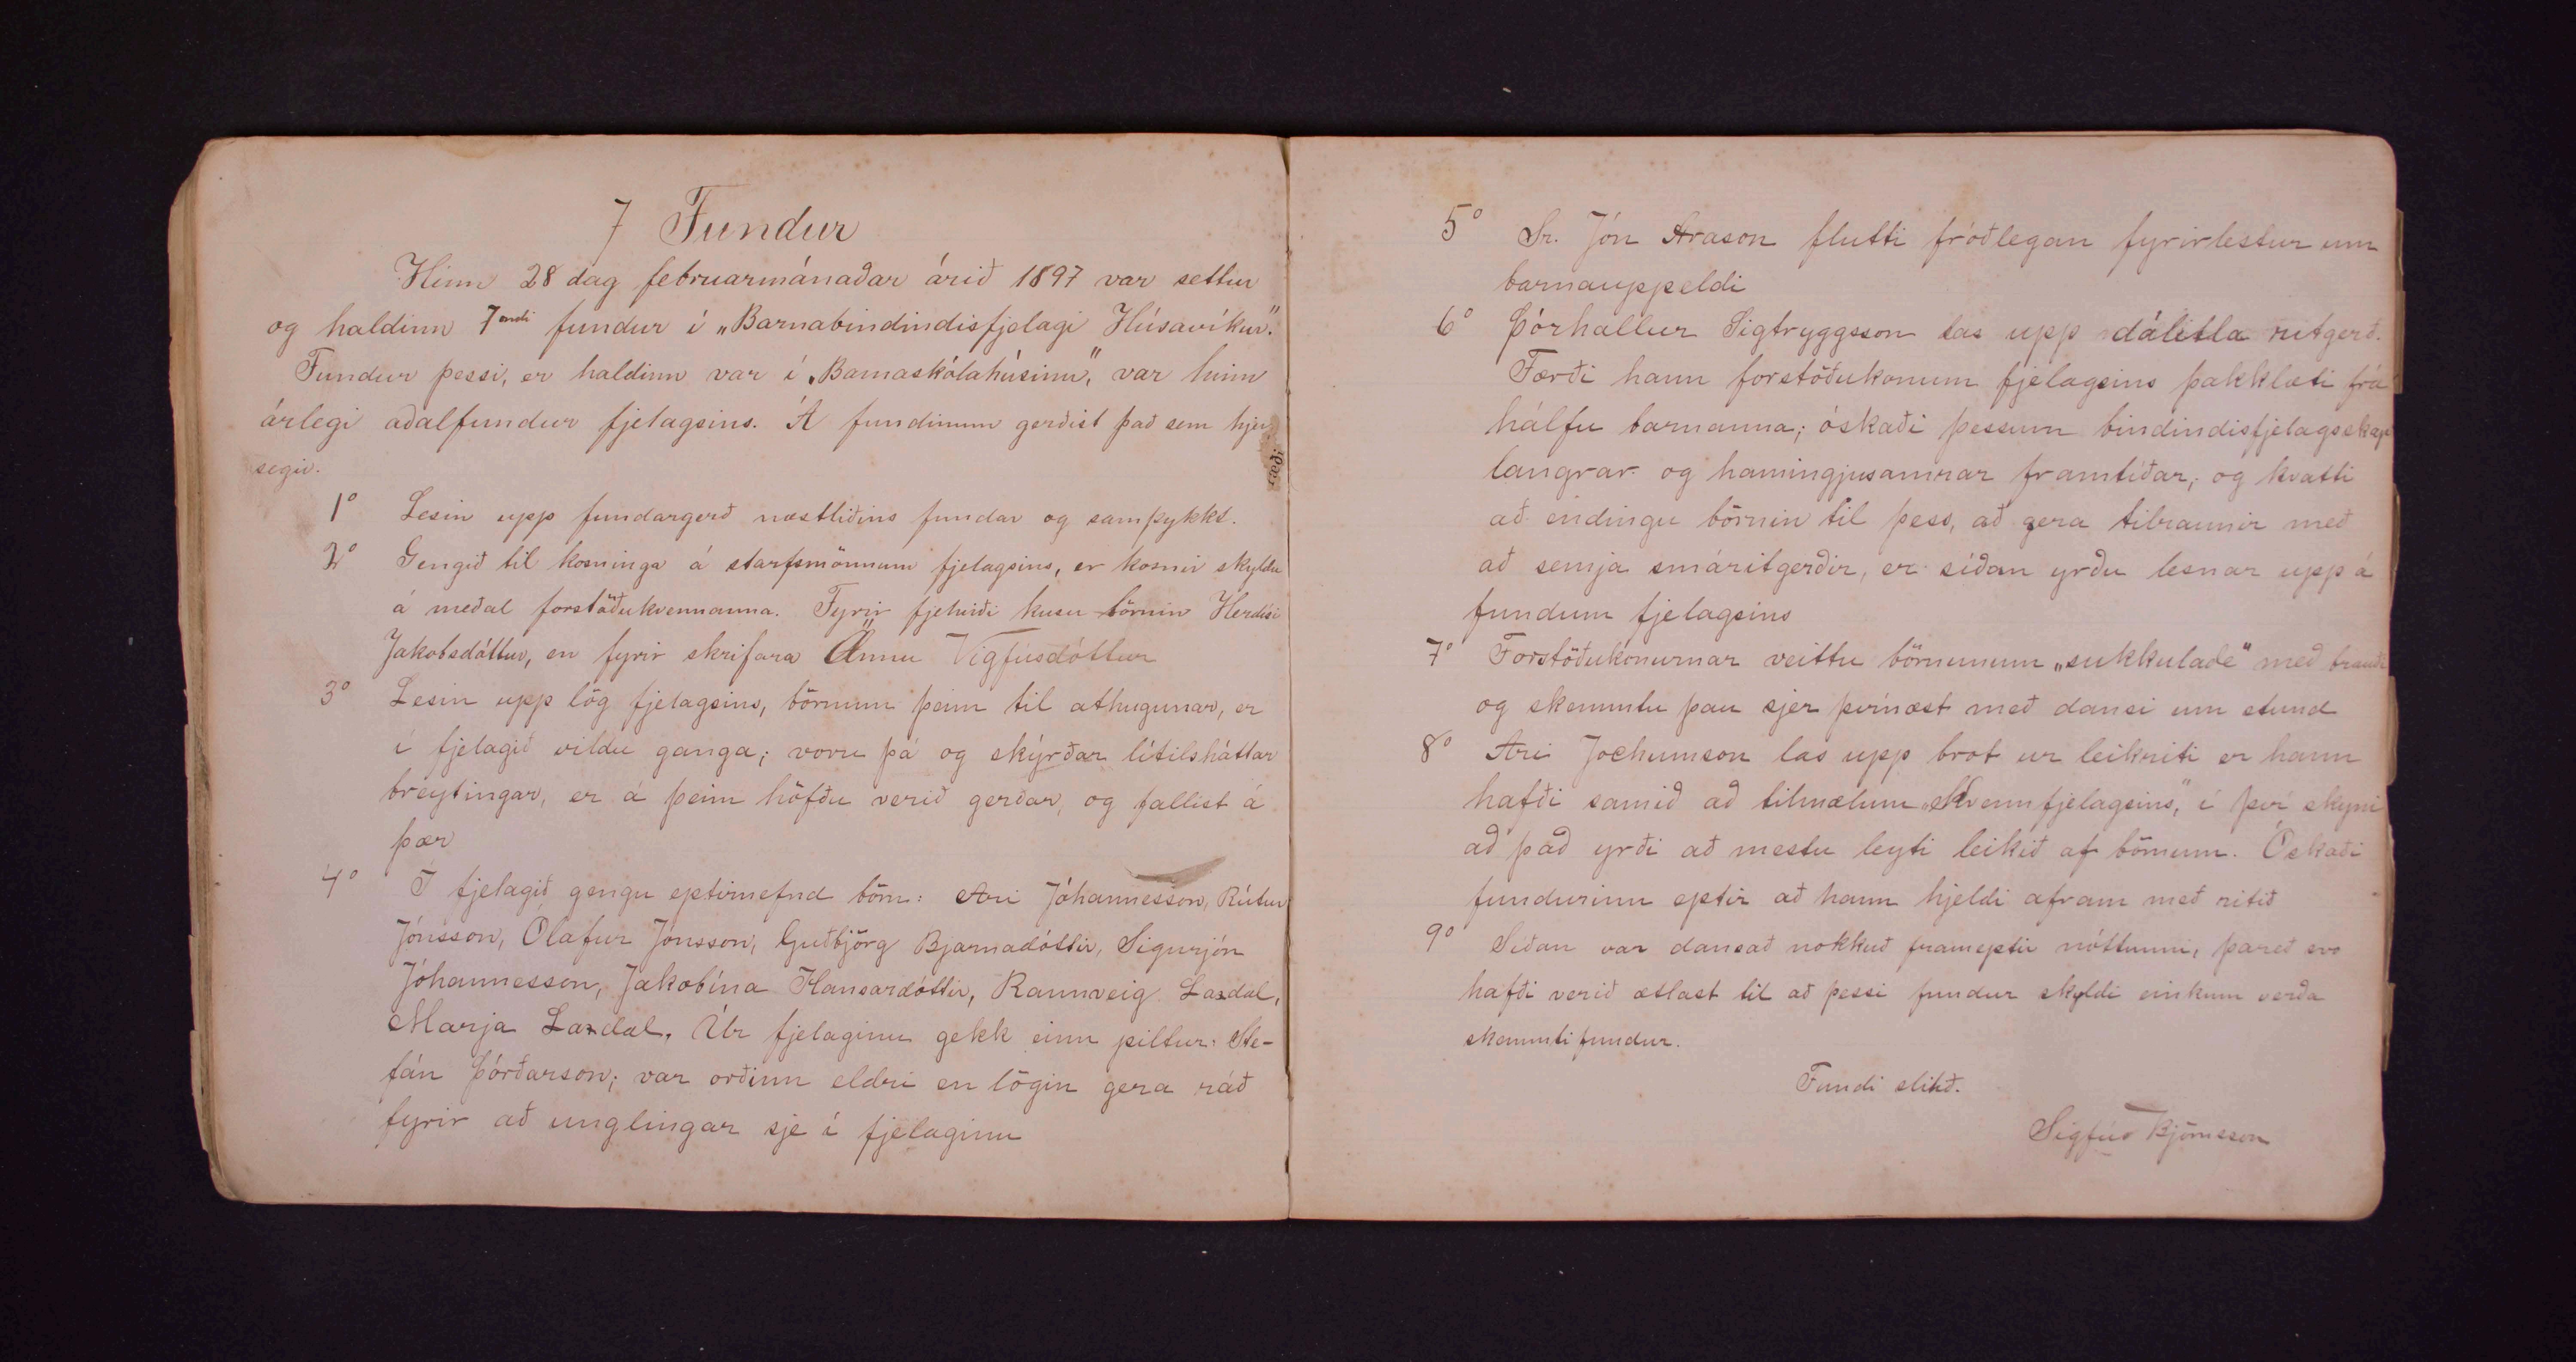 7 Fundur
Hinn 28 dag februarmánaðar árið 1897 var settur
og haldinn 7andi fundur í „Barnabindindisfjelagi Húsavíkur".
Fundur þessi, er haldinn var í „Barnaskólahúsinu", var hinn
árlegi aðalfundur fjelagsins. Á fundinum gerðist það sem hjer
segir.
1° Lesin upp fundargerð næstliðins fundar og samþykkt.
2° Gengið til kosninga á starfsmönnum fjelagsins, er kosnir skyldu
á meðal forstöðukvennanna. Fyrir fjehirði kusu börnin Herdísi
Jakobsdóttur, en fyrir skrifara Önnu Vigfúsdóttur
3° Lesin upp lög fjelagsins, börnum þeim til athugunar, er
í fjelagið vildu ganga; voru þá og skýrðar lítilsháttar
breytingar, er á þeim höfðu verið gerðar, og fallist á
þær
4° Í fjelagið gengu eptirnefnd börn: Ari Jóhannesson, Rútur
Jónsson, Ólafur Jónsson, Guðbjörg Bjarnadóttir, Sigurjón
Jóhannesson, Jakobína Hansardóttir, Rannveig Laxdal,
Marja Laxdal. Úr fjelaginu gekk einn piltur: Ste-
fán Þórðarson; var orðinn eldri en lögin gera ráð
fyrir að unglingar sje í fjelaginu
5° Sr. Jón Arason flutti fróðlegan fyrirlestur um
barnauppeldi
6° Þórhallur Sigtryggsson las upp dálitla ritgerð.
Færði hann forstöðukonum fjelagsins þakklæti frá
hálfu barnanna; óskaði þessum bindindisfjelagsskap
langrar og hamingjusamrar framtíðar, og kvatti
að endingu börnin til þess, að gera tilraunir með
að semja smáritgerðir, er síðan yrðu lesnar upp á
fundum fjelagsins
7° Forstöðukonurnar veittu börnunum „sukkulade" með brauði
og skemmtu þau sjer þvínæst með dansi um stund
8° Ari Jochumson las upp brot ur leikriti er hann
hafði samið að tilmælum „Kvennfjelagsins", í því skyni
að það yrði að mestu leyti leikið af börnum. Óskaði
fundurinn eptir að hann hjeldi afram með ritið
9° Síðan var dansað nokkuð frameptir nóttunni, þareð svo
hafði verið ætlast til að þessi fundur skyldi einkum verða
skemmtifundur.
Fundi slitið.
Sigfús Björnsson